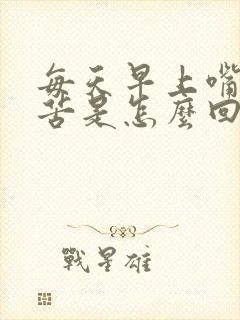 每天早上嘴
苦是怎麼回
戰星雄